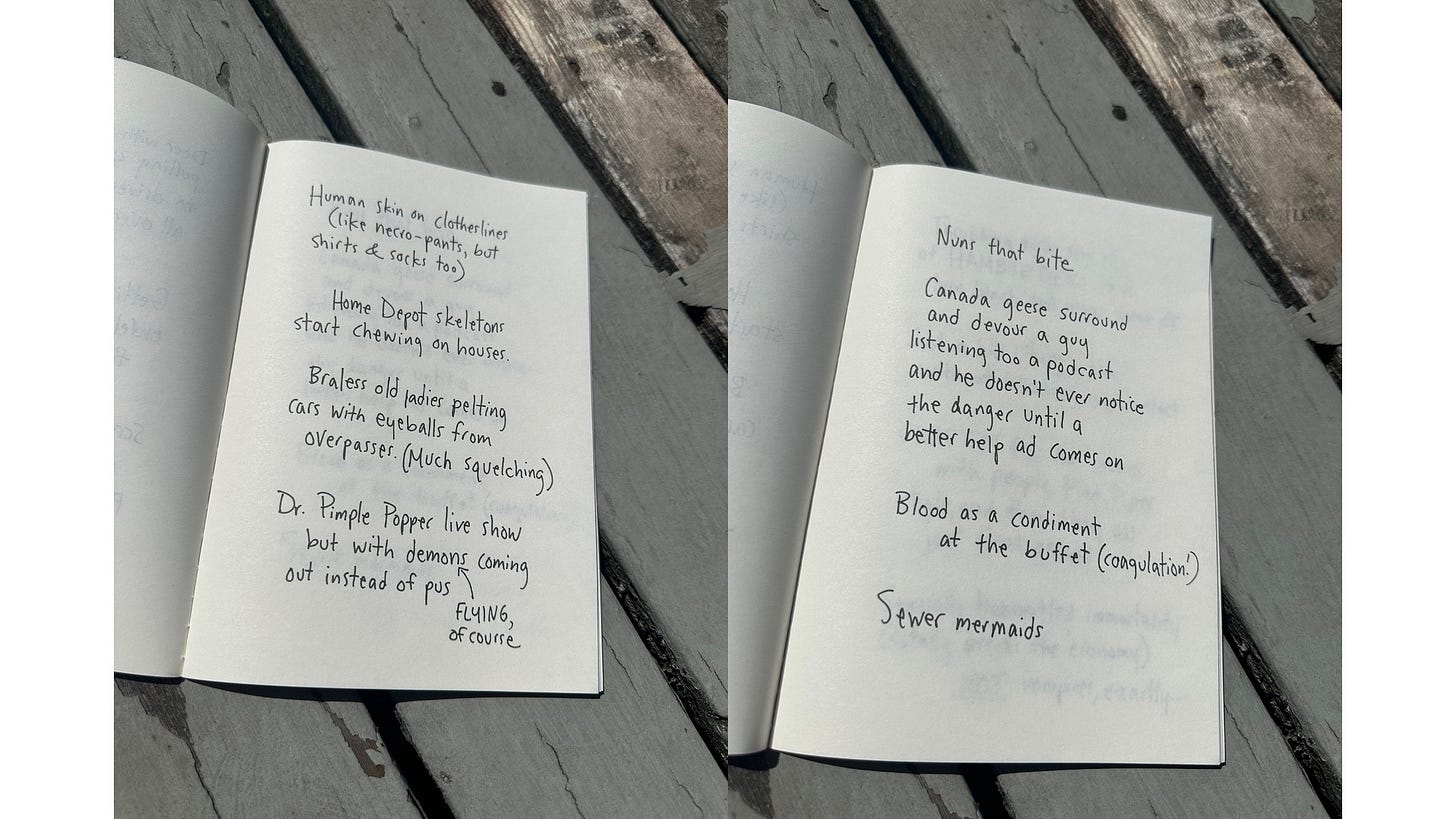 Human skin on clotheslines
(like necro-pants, but
shirts & socks too)
Home Depot skeletons
start chewing on houses.
Braless old ladies pelting
cars with eyeballs from
overpasses. (Much squelching)
Dr. Pimple Popper live show
but with demons coming
out instead of pus
FLYING,
of course
Nuns that bite
Canada geese surround
and devour a guy
listening too a podcast
and he doesn't ever notice
the danger until a
better help ad comes on
Blood as a condiment
at the buffet (coagulation!)
Sewer mermaids